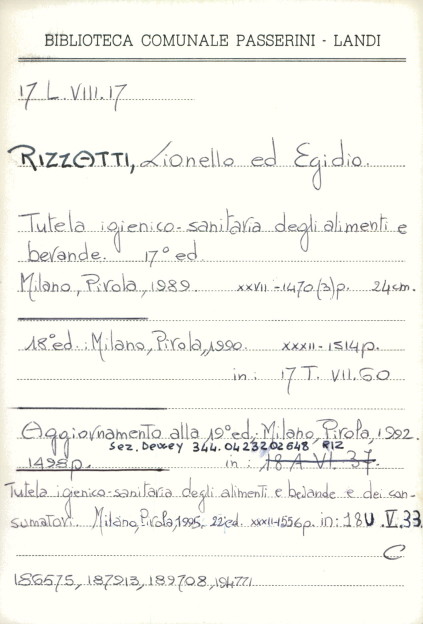 BIBLIOTECA COMUNALE PASSERINI - LANDI
17 L.VIII.17
RIZZOTTI, Lionello ed Egidio.
Tutela igienico-sanitaria degli alimenti e
bevande. 17° ed.
Milano, Pirola, 1989. XXVII-1470(3)p. 24cm.
18°ed.: Milano, Pirola, 1990. XXXII-1514p.
in: 17 T. VII.60
Aggiornamento alla 19°ed.: Milano, Pirola, 1992.
Sez. Dewey 344.0423202648 RIZ
1498p. in: 18 A VI. 37.
Tutela igienico-sanitaria degli alimenti e bevande e dei con-
sumatori. Milano, Pirola, 1995, 22°ed. XXXII-1556p. in: 18 U.V.33
C
186575, 187913, 189708, 194771